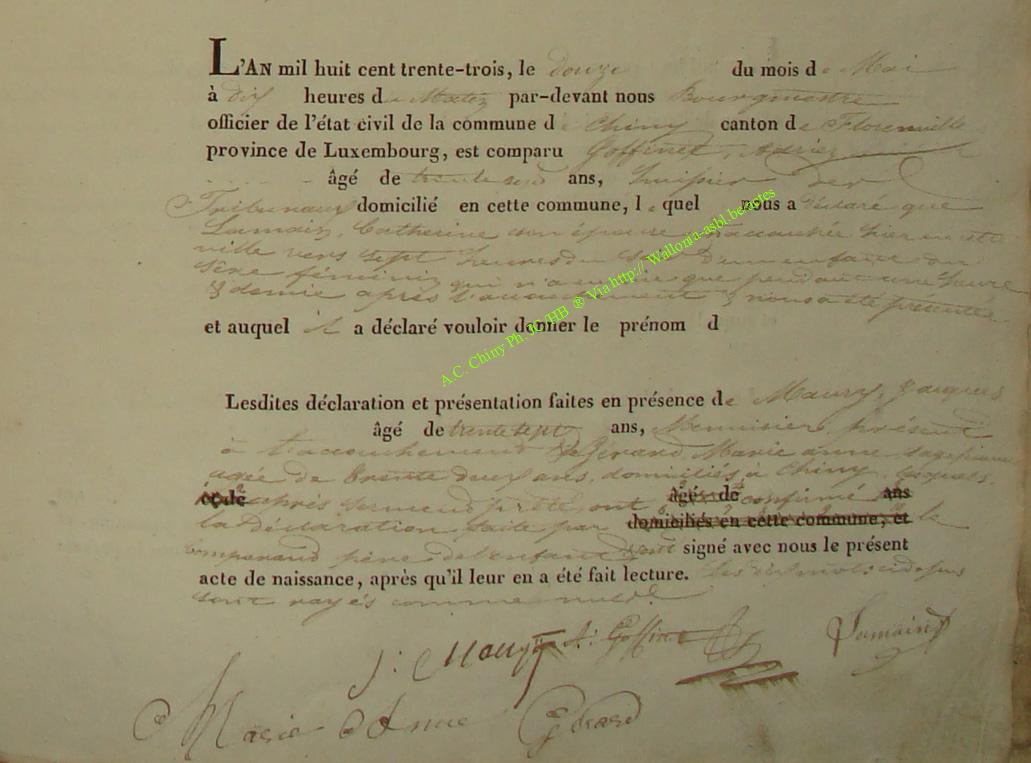 L'AN mil huit cent trente-trois, le douze du mois de Mai
à dix heures du Matin par-devant nous Bourgmestre
officier de l'état civil de la commune de Chiny canton de Florenville
province de Luxembourg, est comparu Goffinet, Adrien
âgé de trente ans, huissier des
Tribunaux domicilié en cette commune, lequel nous a déclaré que
Lamain, Catherine son épouse accouchée hier en cette
ville vers sept heures du d'un enfant du
sexe féminin qui n'a que pendant une heure
& demie après l'accouchement & nous a été présentée
et auquel il a déclaré vouloir donner le prénom d
Lesdites déclaration et présentation faites en présence de Maury, Jacques
âgé de trente sept ans, Menuisier, présent
à l'accouchement & de Gérard Marie anne sage femme
agée de trente deux ans, domiciliés à Chiny, lesquels
après serment prêté, ont âgés de confirmé ans
la Déclaration faite par domiciliés en cette commune, et le
comparant père de l'enfant & ont signé avec nous le présent
acte de naissance, après qu'il leur en a été fait lecture. Les dix mots cidessus
sont rayés comme nuls.
J: Maury A: Goffinet Lamain
Marie Anne Gérard
A.C. Chiny Ph. JG/HB ® Via http:// Wallonia-asbl.be/astes